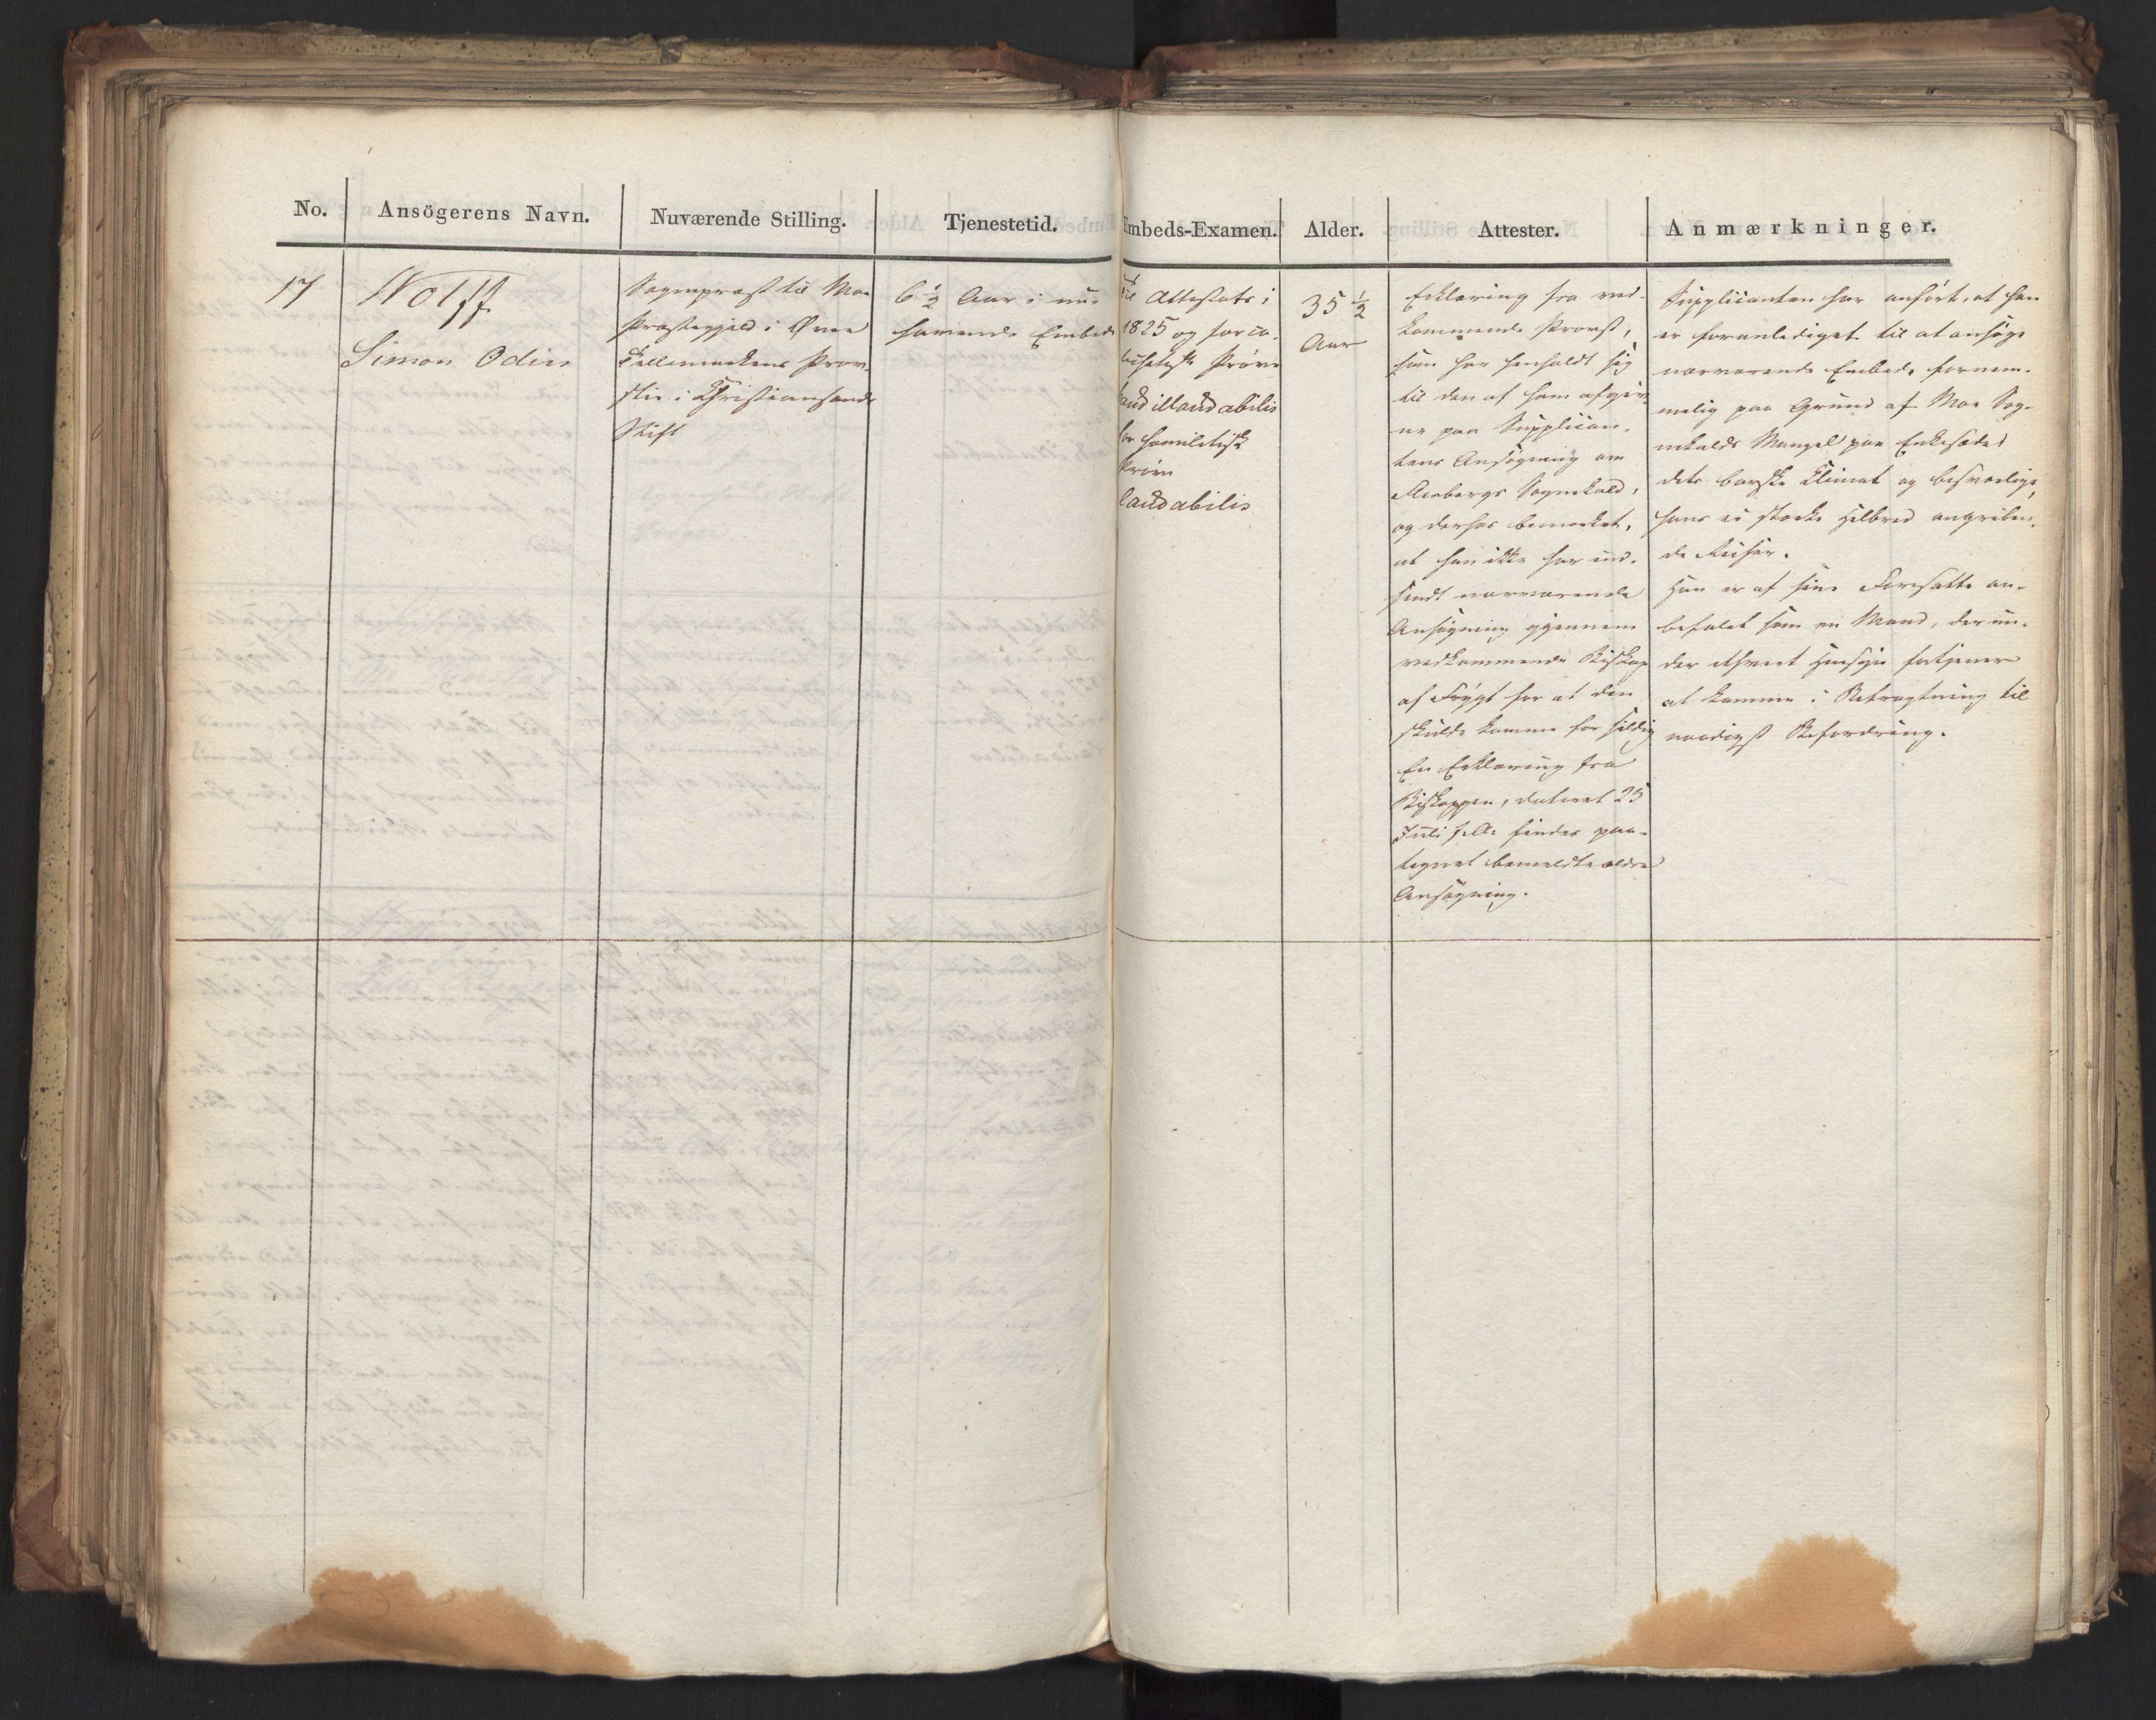 No.
Ansögerens Navn.
Nuværende Stilling.
Tjenestetid.
Embeds-Examen.
Alder.
Attester.
Anmærkninger.
17
Wolff
Simon Odin
Sognepræst til Moe
Præstegjeld i Øvre
Tellemarkens Prov-
stie i Christiansands
Stift
6 ½ Aar i nu-
havende Embede
til Attestats i
1825 og for ca-
techetisk Prøve
haud illaudabilis
for homiletisk
Prøve
laudabilis
35 ½
Aar
Erklæring fra ved-
kommende Provst,
som har henholdt sig
til den af ham afgiv-
ne paa Supplican-
tens Ansøgning om
Sognekald,
og derhos bemærket,
at han ikke har ind-
sendt nærværende
Ansøgning gjennem
vedkommende Biskop
af Frygt for at den
skulde komme for sildig
En Erklæring fra
Biskoppen, dateret 25
Juli findes paa-
tegnet bemeldte ældre
Ansøgning.
Supplicanten har anført, at han
er foranlediget til at ansøge
nærværende Embede fornem-
melig paa Grund af Moe Sog-
nekalds Mangel paa Enkesæde
dets barske Climat og besværlige,
hans ei stærke Helbred angriben-
de Reiser.
Han er af sine Foresatte an-
befalet som en Mand, der un-
der ethvert Hensyn fortjener
at komme i Betragtning til
naadigst Befordring.